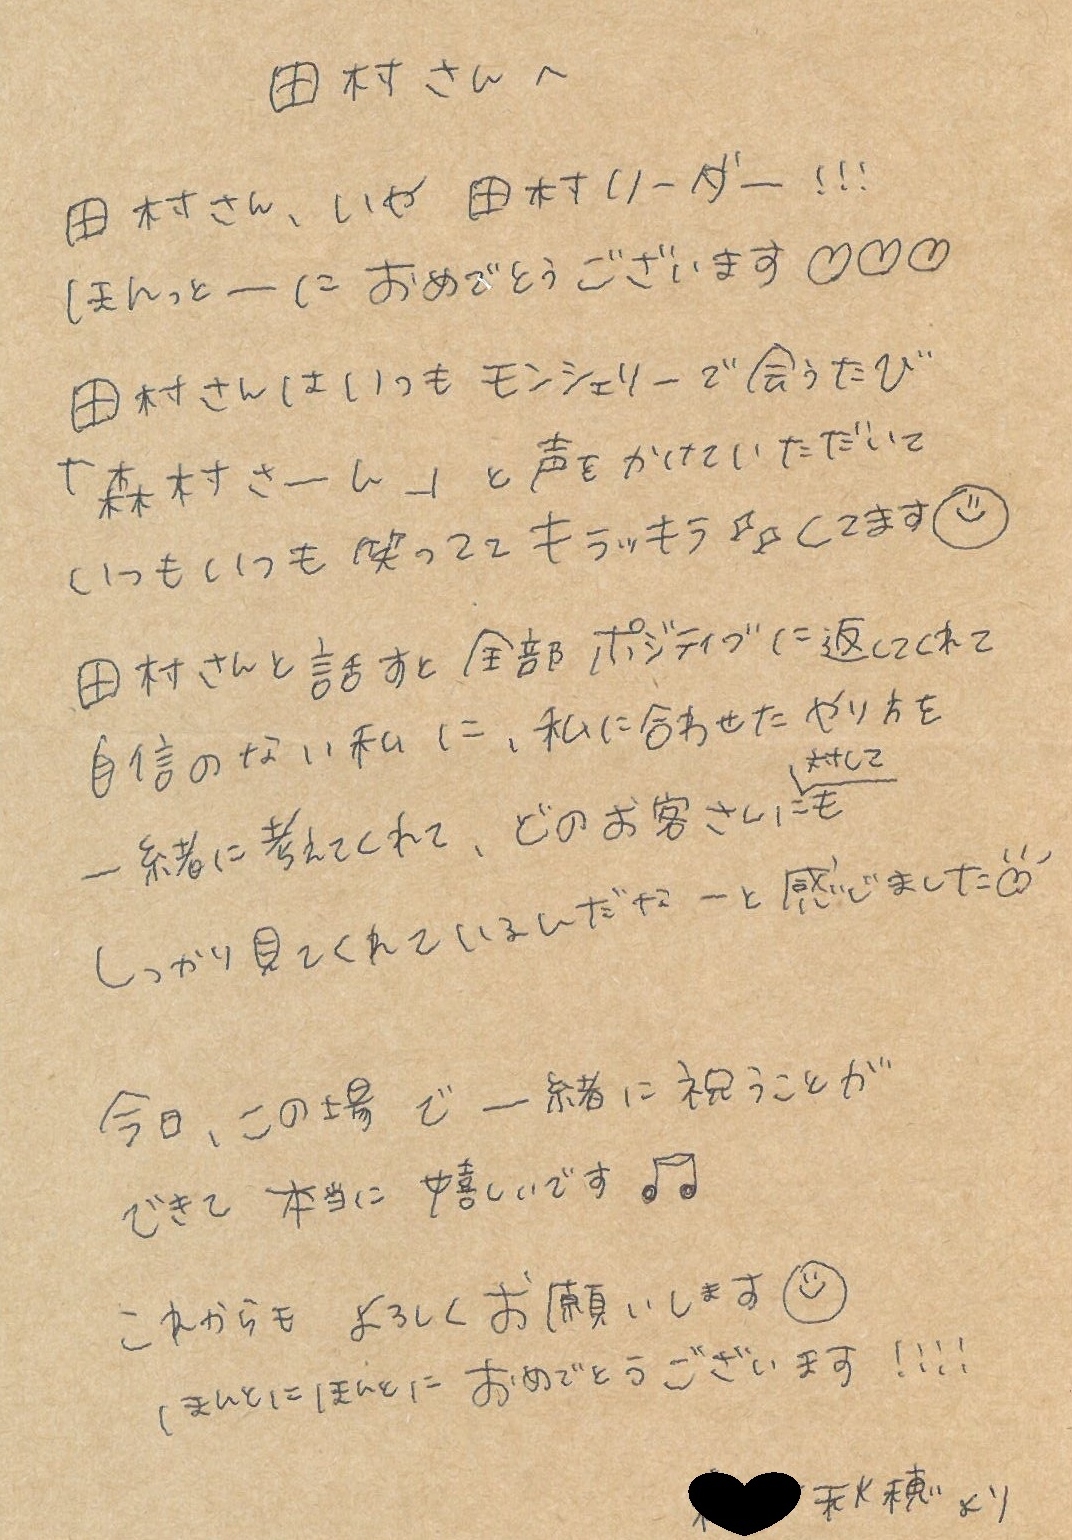 田村さんへ
田村さん、いや 田村リーダー!!!
ほんっとーに おめでとうございます♡♡♡
田村さんはいつも モンシェリーで会うたび
「森村さーん」と声をかけていただいて
いつもいつも笑ってて キラッキラ☆☆してます
田村さんと話すと全部 ポジティブに返してくれて
自信のない私に、私に合わせた やり方を
一緒に考えてくれて、どのお客さんに対しても
しっかり見てくれているんだなーと感じました
今日、この場で一緒に祝うことが
できて 本当に 嬉しいです♫
これからも よろしくお願いします
ほんとにほんとに おめでとうございます!!!!
秋穂より